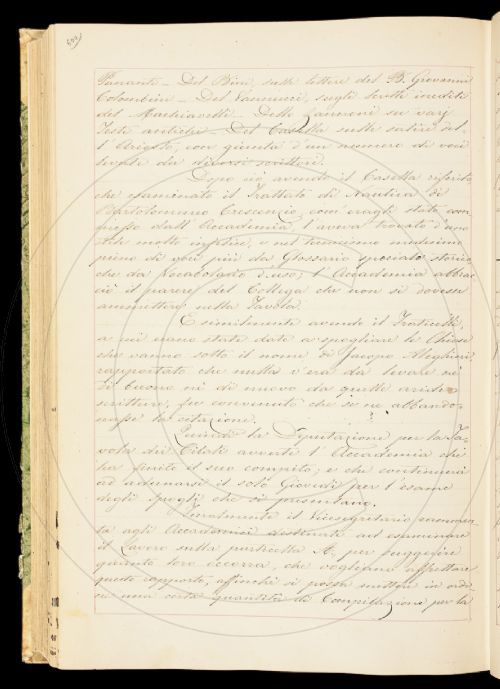 Parranti – Del Bini, sulle lettere del B. Giovanni
Colombini – Del Vannucci, sugli scritti inediti
del Machiavelli – Dello Zannoni su varj
Testi antichi – Del Casella sulle satire del-
l'Ariosto, con giunta d'un numero di voci
levate da diversi scrittori.
Dopo ciò avendo il Casella riferito
che esaminato il Trattato di Nautica di
Bartolommeo Crescenzio, com'eragli stato com-
messo dall'Accademia, l'aveva trovato d'uno
stile molto infelice, e nel medesimo
pieno di voci più da Glossario speciale storico
che da Vocabolario d'uso; l'Accademia abbrac-
ciò il parere del Collega che non si dovesse
ammettere nella Tavola.
E similmente avendo il Fraticelli,
a cui erano state date a spogliare le Chiose
che vanno sotto il nome di Jacopo Alighieri,
rapportato che nulla v'era da levare nè
di buono nè di nuovo da quelle aride
scritture, fu convenuto che se ne abbando-
nasse la citazione.
Quindi la Deputazione per la Ta-
vola dei Citati avvertì l'Accademia che
ha finito il suo compito; e che continuerà
ad adunarsi il solo Giovedì per l'esame
degli spogli che si presentano.
Finalmente il Vicesegretario
agli Accademici destinati ad esaminare
il Lavoro sulla particella A, per suggerire
quanto loro occorra, che vogliano affrettare
questo rapporto, affinchè si possa mettere in ordi-
ne una certa quantità di Compilazione per la